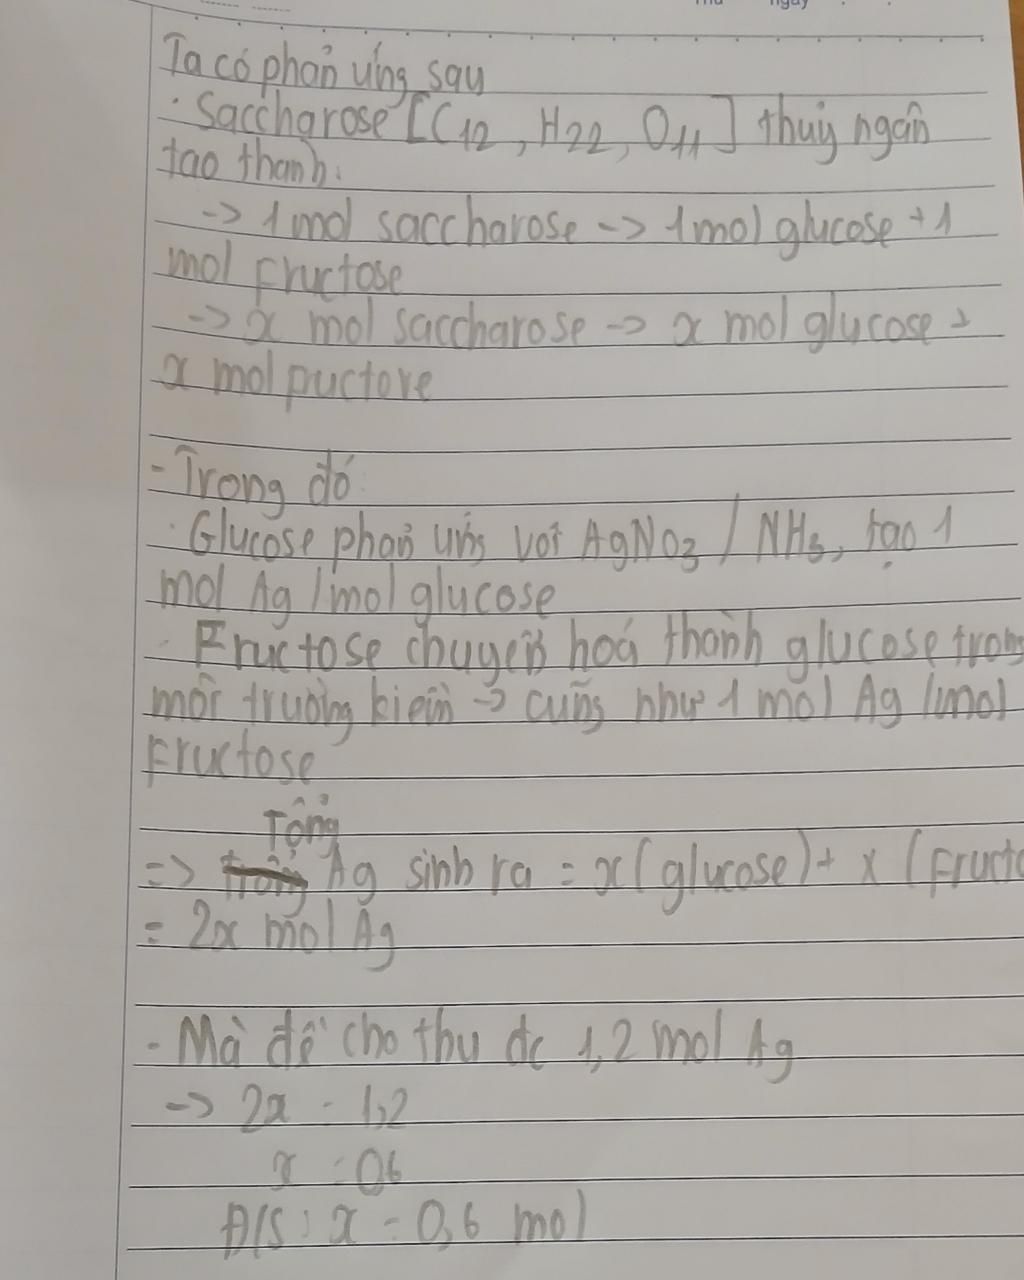 Ta có phản ứng sau
. Saccharose [C12, H22, O11] thuỷ ngân
tạo thanh.
-> 1 mol saccharose -> 1 mol glucose + 1
mol Fructose
-> x mol saccharose -> x mol glucose +
x mol puctore
- Trong đó:
. Glucose phản ứng với AgNO3 / NH3, tạo 1
mol Ag / mol glucose
. Fructose chuyển hoá thành glucose trong
môi trường kiềm -> cũng như 1 mol Ag / mol
Fructose
Tổng
=> Ag sinh ra = x (glucose) + x (Fructo
= 2x mol Ag
- Mà đề cho thu đc 1,2 mol Ag
-> 2x = 1,2
x = 06
Đ/S : x = 0,6 mol